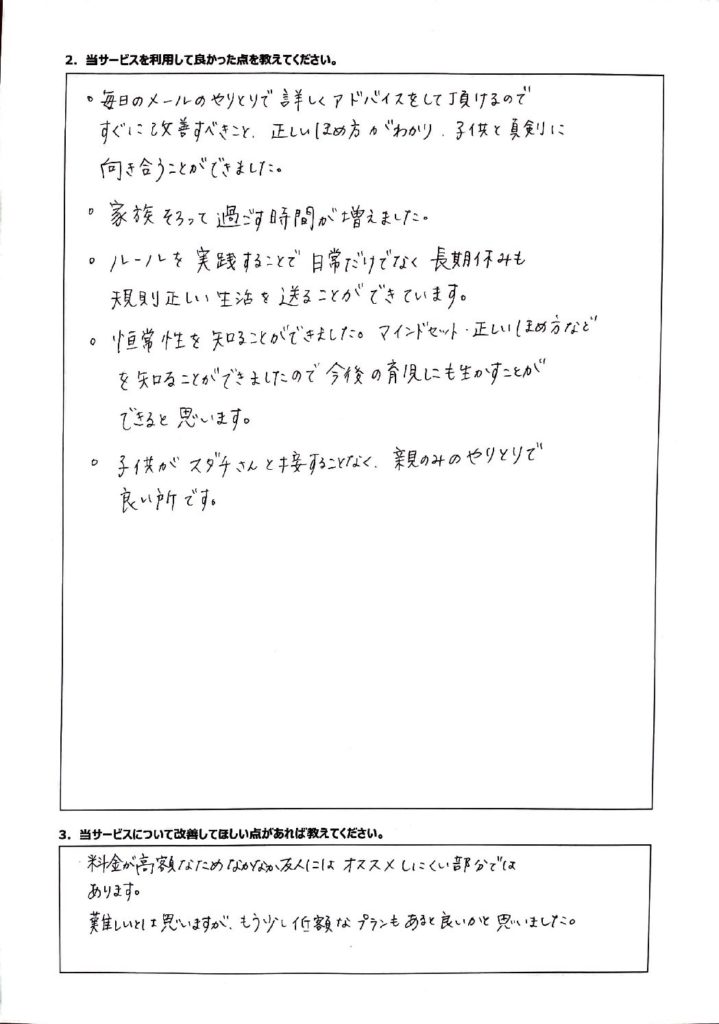 2．当サービスを利用して良かった点を教えてください。
。毎日のメールのやりとりで詳しくアドバイスをして頂けるので
すぐに改善すべきこと、正しいほめ方がわかり、子供と真剣に
向き合うことができました。
。家族そろって過ごす時間が増えました。
。ルールを実践することで日常だけでなく長期休みも
規則正しい生活を送ることができています。
。恒常性を知ることができました。マインドセット・正しいほめ方など
を知ることができましたので今後の育児にも生かすことが
できると思います。
。子供がスダチさんと接することなく、親のみのやりとりで
良い所です。
3．当サービスについて改善してほしい点があれば教えてください。
料金が高額なためなかなか友人にはオススメしにくい部分では
あります。
難しいとは思いますが、もう少し低額なプランもあると良いかと思いました。